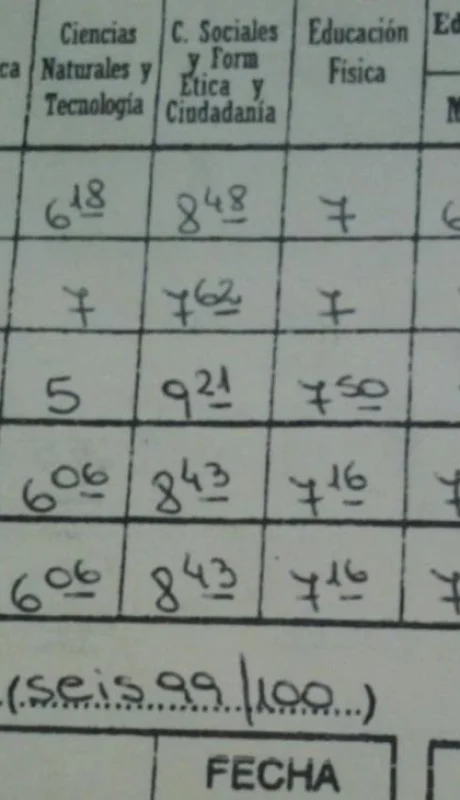 ca Ciencias Naturales y Tecnología C. Sociales y Form Etica y Ciudadanía Educación Física Ed
6 18 8 48 7 6
7 7 62 7
5 9 21 7 50
6 06 8 43 7 16 7
6 06 8 43 7 16 7
(seis 99/100)
FECHA